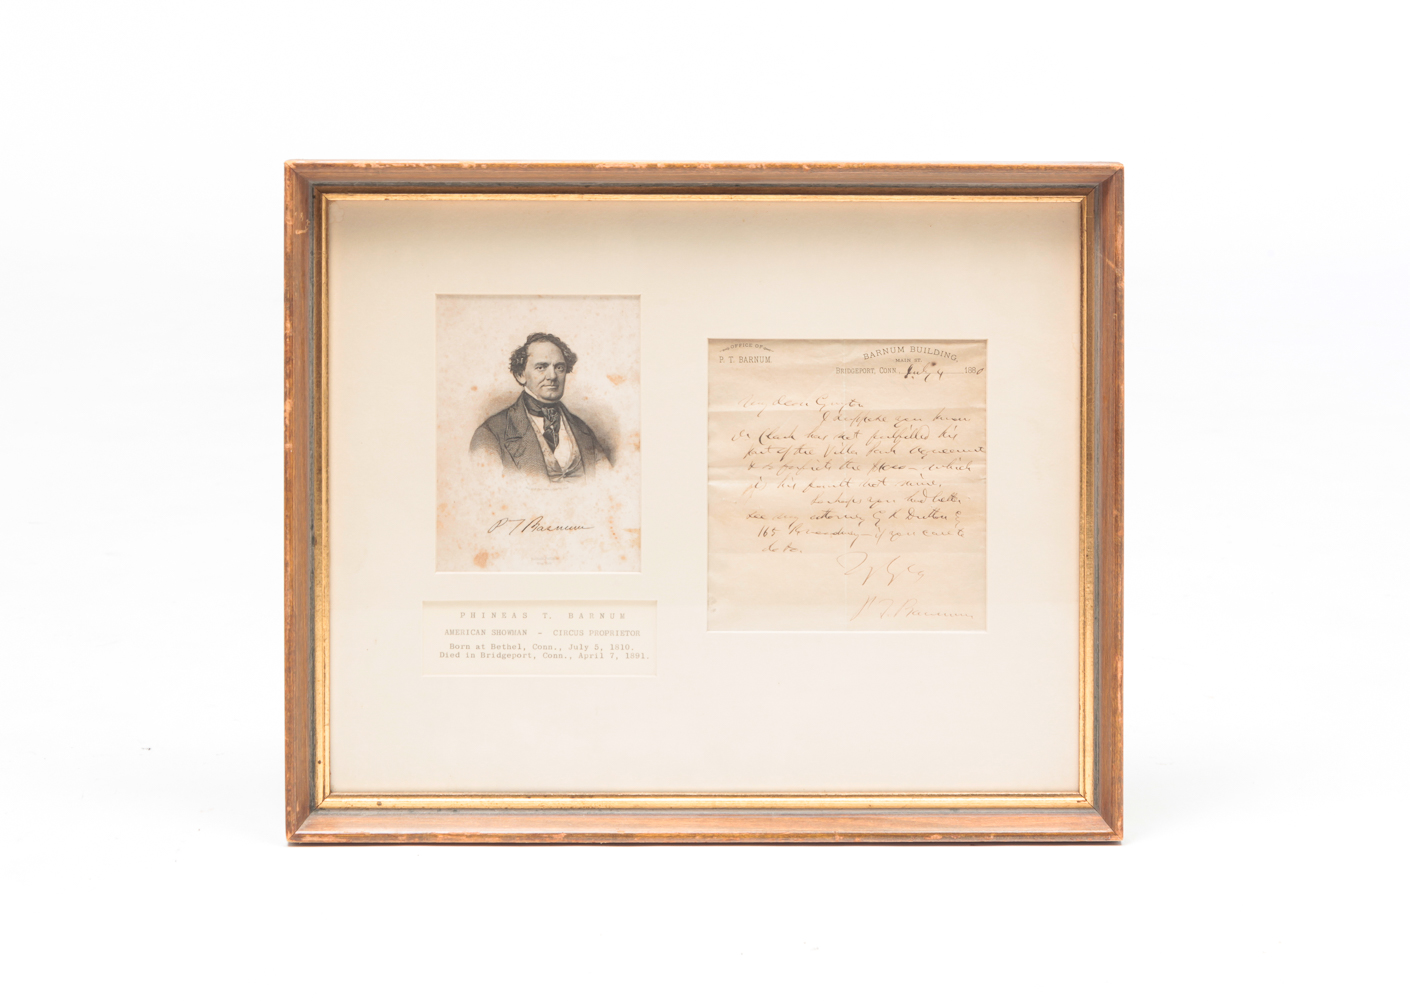 P T Barnum
PHINEAS T. BARNUM
AMERICAN SHOWMAN - CIRCUS PROPRIETOR
Born at Bethel, Conn., July 5, 1810.
Died in Bridgeport, Conn., April 7, 1891.
OFFICE OF
P. T. BARNUM.
BARNUM BUILDING.
MAIN ST.
BRIDGEPORT, CONN. July 4 188
My dear
I suppose you know
Dr Clark has not fulfilled his
part of the agreement
& so forfeits the which
is his fault not mine.
Perhaps you had better
see my attorney
165 Broadway if you care to
do so.
P. T. Barnum